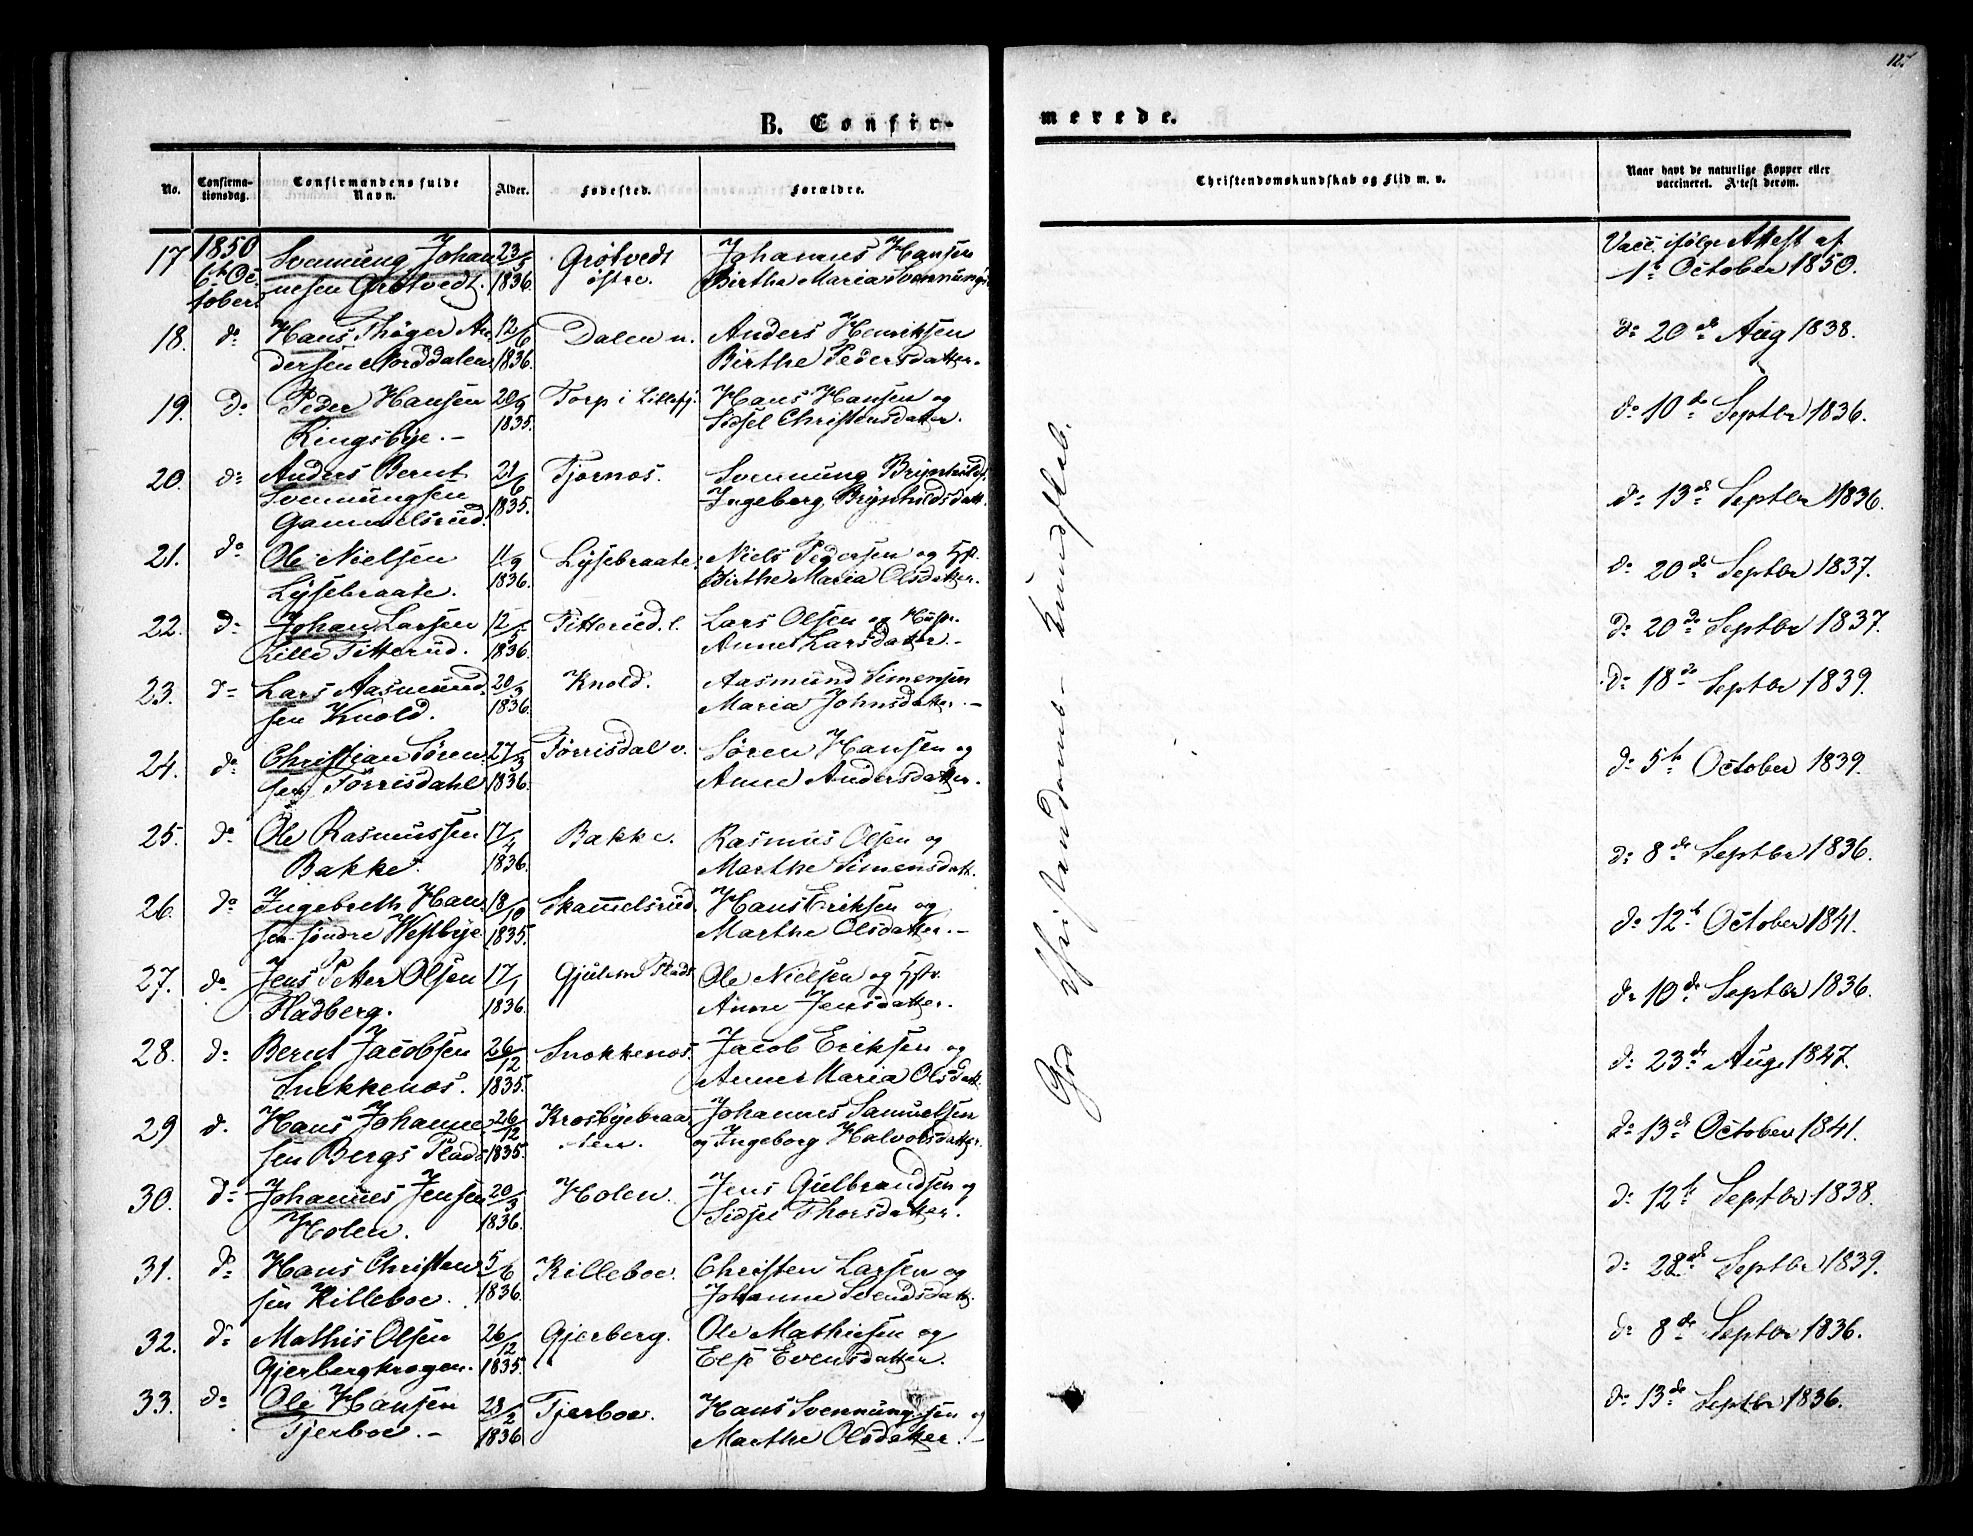 127
B. Confir-
merede.
No.
Confirma-
tionsdag.
Confirmandens fulde
Navn.
Alder.
Fødested.
Forældre.
Christendomskundskab og Flid m. v.
Naar havt de naturlige Kopper eller
vaccineret. Attest derom.
17 1850 Svennung Johan 23/5 Grøtvedt Johannes Hansen
6te Oc nesen Grøtvedt. 1836. østre. Birthe Maria Svennungs
tober.
Vacc. ifølge Attest af
1te October 1850.
18. do Hans Thøger An 12/6 Dalen n. Anders Henriksen
dersen Norddalen 1836. Birthe Pedersdatter.
do 20de Aug 1838.
19. do Peder Hansen 20/9 Torp i Lillefj. Hans Hansen og
Ringsbye. 1835. Sidsel Christensdatter.
do 10de Septbr 1836.
20. do Anders Bernt 21/6 Tjernos. Svennung Brynhilds
Svennungsen 1835. Ingeborg Brynhildsdatt.
Gammelsrud.
do 13de Septbr 1836.
21. do Ole Nielsen 11/9 Lysebraate. Niels Pedersen og Hst.
Lysebraate. 1836. Birthe Maria Olsdatter.
do 20de Septbr 1837.
22. do Johan Larsen 12/5 Titterud. l. Lars Olsen og Hustr.
Lille Titterud. 1836. Anne Larsdatter.
do 20de Septbr 1837.
23. do Lars Aasmund 20/3 Knold. Aasmund Simensen
sen Knold. 1836. Maria Johnsdatter.
do 18de Septbr 1839.
24. do Christian Søren 27/3 Tørrisdal v. Søren Hansen og
sen Tørrisdahl 1836. Anne Andersdatter.
do 5th October 1839.
25. do Ole Rasmussen 17/4 Bakke. Rasmus Olsen og
Bakke. 1836. Marthe Simensdatt.
do 8de Septbr 1836.
26. do Ingebreth Han 18/10 Skammelsrud. Hans Eriksen og
sen søndre Westbye 1835. Marthe Olsdatter.
do 12th October 1841.
27. do Jens Petter Olsen 17/1 Gjulem Plads Ole Nielsen og Hstr.
Fladberg. 1836. Anne Jensdatter.
do 10de Septbr 1836.
28. do Bernt Jacobsen 26/12 Snekkenos. Jacob Eriksen og
Snekkenos. 1835. Anne Maria Olsdatt.
do 23de Aug. 1847.
29 do. Hans Johanne 26/12 Krosbyebraa Johannes Samuelsen
sen Bergs Plads 1835. ten. og Ingeborg Halvorsdatter.
do 13de October 1841.
30. do Johannes Jensen 20/3 Holen. Jens Gulbrandsen og
Holen. 1836. Sidsel Thorsdatter.
do 12th Septbr 1838.
31. do Hans Christen 5/6 Killeboe. Christen Larsen og
sen Killeboe. 1836. Johanne Svendsdatt.
do 28de Septbr 1839.
32. do Mathis Olsen 26/12 Gjerberg. Ole Mathiesen og
Gjerbergkrogen. 1835. Else Evensdatter.
do 8de Septbr 1836.
33. do Ole Hansen 28/2 Tjerboe. Hans Svennungsen og
Tjerboe. 1836 Marthe Olsdatter.
do 13de Septbr 1836.
God Christendoms kundskab.